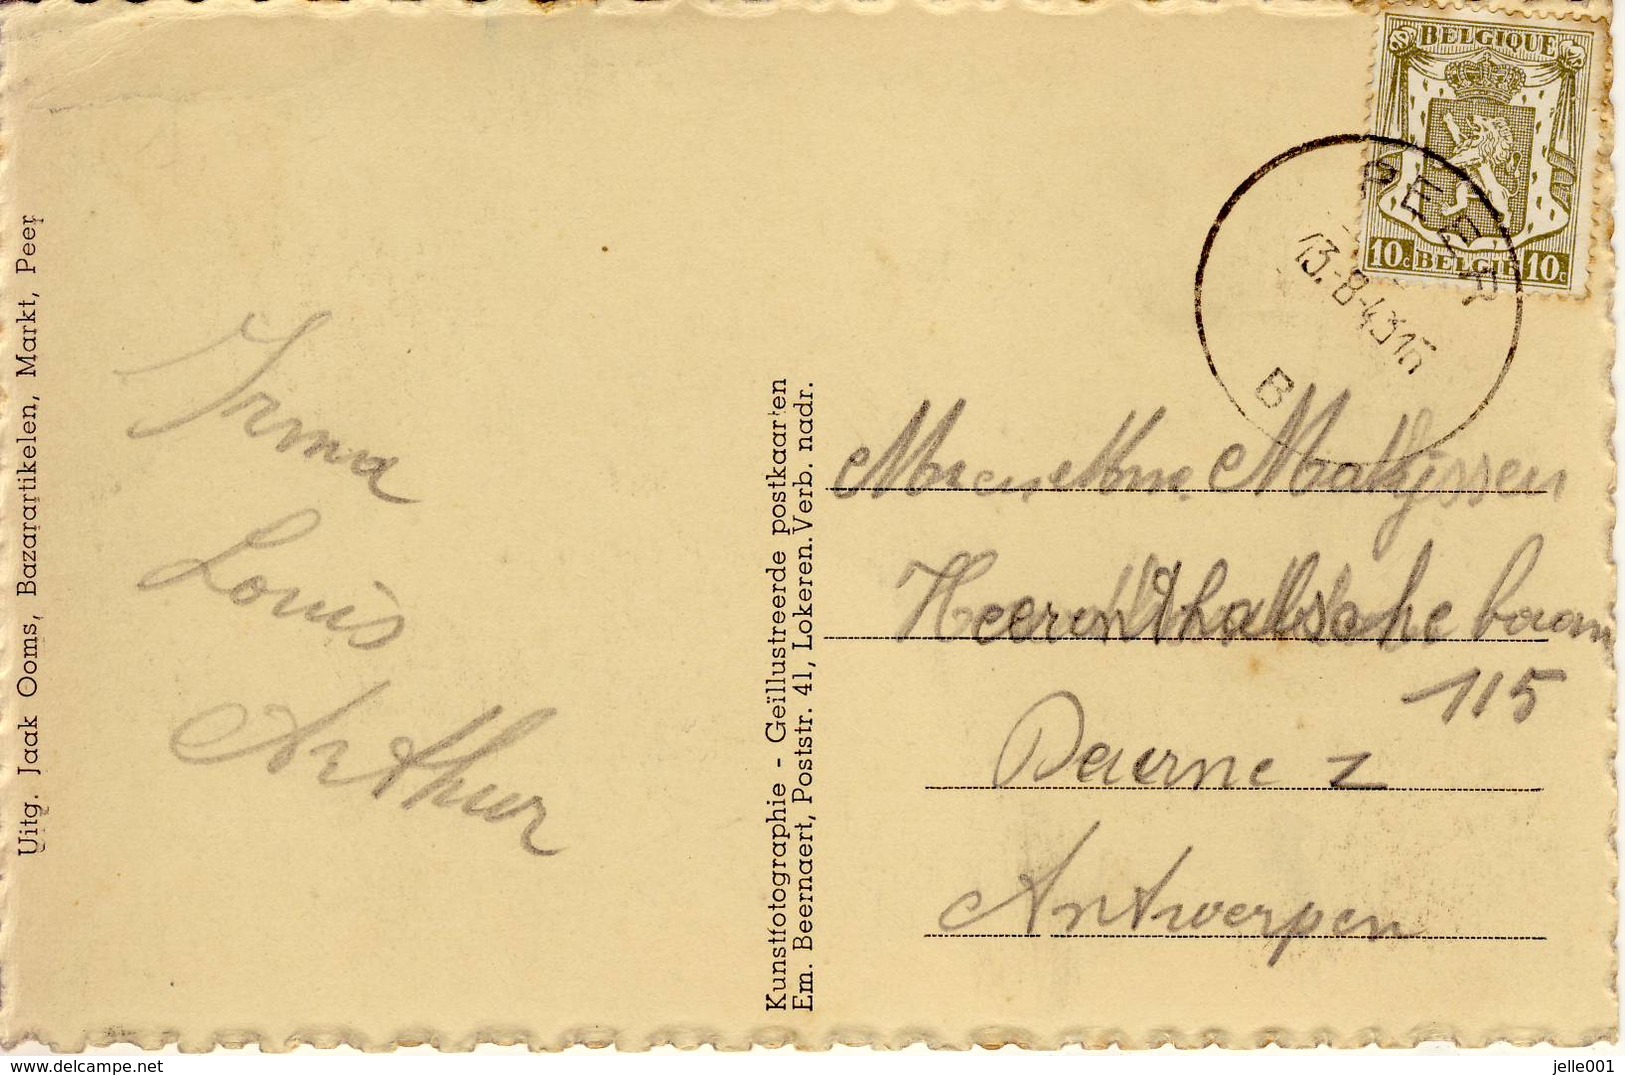 BELGIQUE
10c BELGIË 10c
PEER
13.-8-43 15
B
Uitg. Jaak Ooms, Bazarartikelen, Markt, Peer
Irma
Louis
Arthur
Kunstfotographie - Geïllustreerde postkaarten
Em. Beernaert, Poststr. 41, Lokeren. Verb. nadr.
Mathijssen
Heerenthalsche baan
115
Deurne Z
Antwerpen
delcampe.net
jelle001